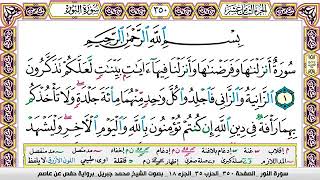 سُورَةُ النُّورِ ٣٥٠ الجزء الثامن عشر
بِسْمِ ٱللَّهِ ٱلرَّحْمَٰنِ ٱلرَّحِيمِ
سُورَةٌ أَنزَلْنَٰهَا وَفَرَضْنَٰهَا وَأَنزَلْنَا فِيهَآ ءَايَٰتٍۭ بَيِّنَٰتٍ لَّعَلَّكُمْ تَذَكَّرُونَ
١ ٱلزَّانِيَةُ وَٱلزَّانِى فَٱجْلِدُوا۟ كُلَّ وَٰحِدٍ مِّنْهُمَا مِا۟ئَةَ جَلْدَةٍ وَلَا تَأْخُذْكُم
بِهِمَا رَأْفَةٌ فِى دِينِ ٱللَّهِ إِن كُنتُمْ تُؤْمِنُونَ بِٱللَّهِ وَٱلْيَوْمِ ٱلْءَاخِرِ وَلْيَشْهَدْ
سورة النور الصفحة ٣٥٠، الحزب ٣٥، الجزء ١٨ بصوت الشيخ محمد جبريل. برواية حفص عن عاصم